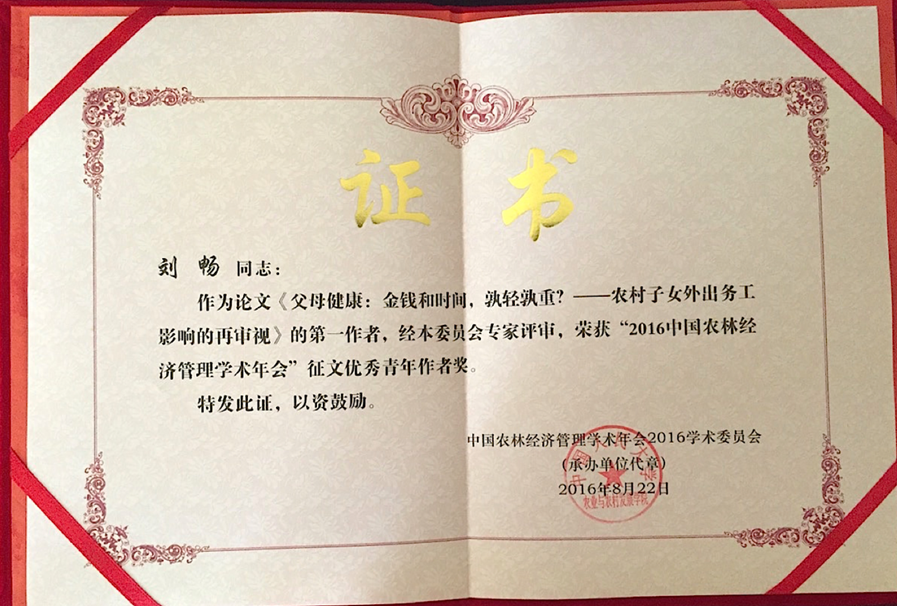 证 书
刘 畅 同志：
作为论文《父母健康：金钱和时间，孰轻孰重？——农村子女外出务工
影响的再审视》的第一作者，经本委员会专家评审，荣获“2016中国农林经
济管理学术年会”征文优秀青年作者奖。
特发此证，以资鼓励。
中国农林经济管理学术年会2016学术委员会
（承办单位代章）
2016年8月22日
中国人民大学
农业与农村发展学院